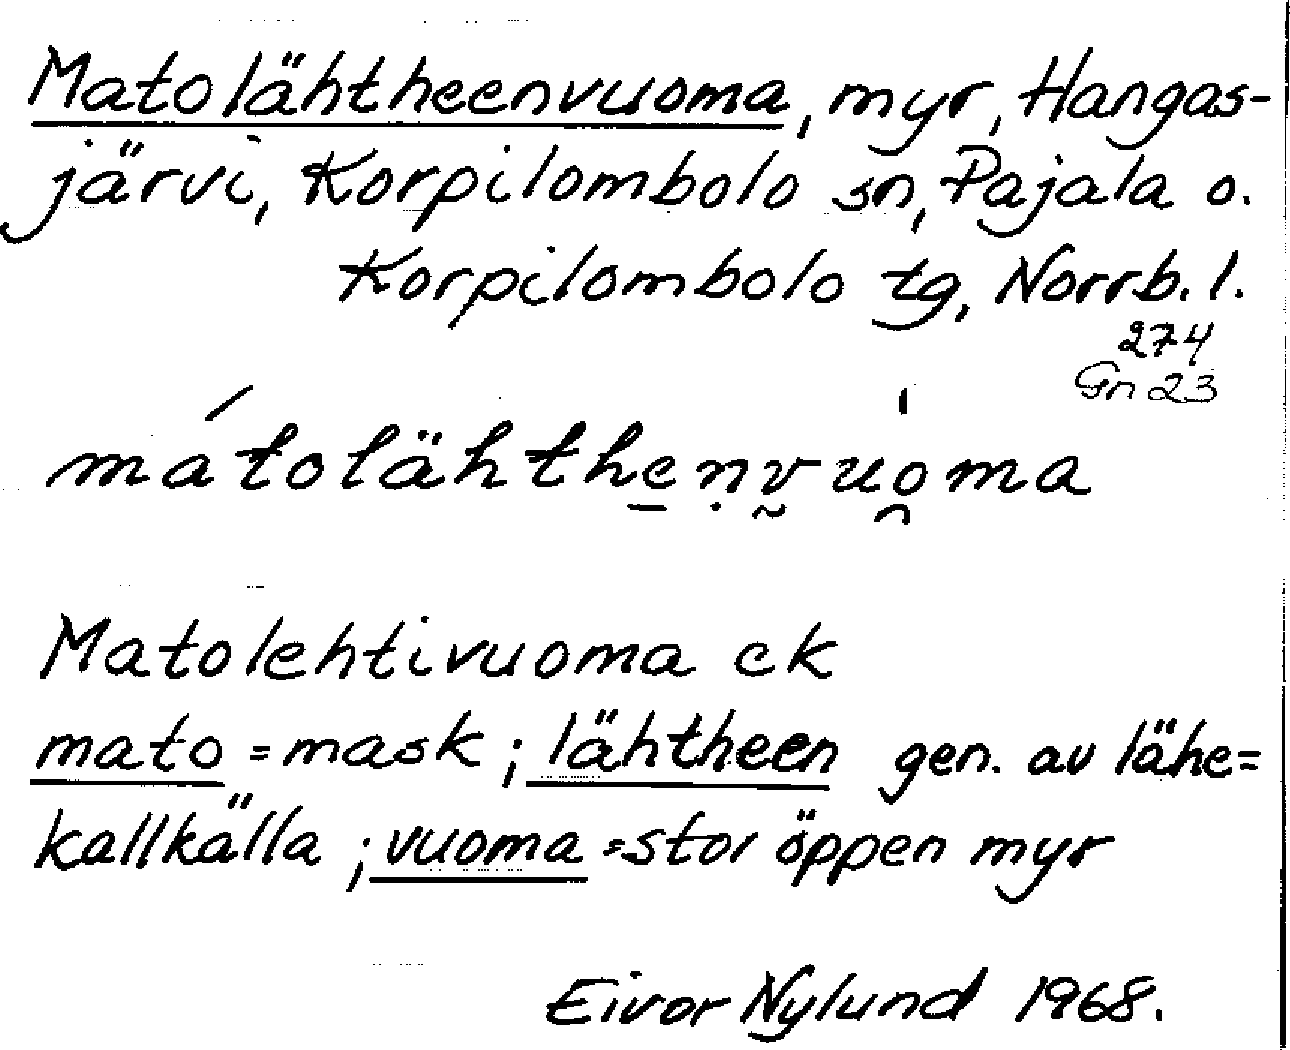 Matolähtheenvuoma, myr, Hangas-
järvi, Korpilombolo sn, Pajala o.
Korpilombolo tg, Norrb. l.
274
Gn 23
mátolähthe̱ṇv̰u̯o̍ma
Matolehtivuoma ek
mato = mask ; lähtheen gen. av lähe =
kallkälla ; vuoma = stor öppen myr
Eivor Nylund 1968.